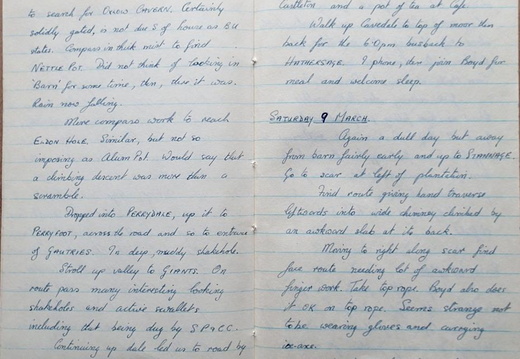 to search for OXLOW CAVERN. Certainly
solidly gated, is not due S. of house as BU
states. Compass in thick mist to find
NETTLE POT. Did not think of looking in
'Barn' for some time, then, there it was.
Rain now falling.
More compass work to reach
ELDON HOLE. Similar, but not so
imposing as Alum Pot. Would say that
a climbing descent was more than a
scramble.
Dropped into PERRYDALE, up it to
PERRYFOOT, across the road and so to entrance
of GAUTRIES. In deep, muddy shakehole.
Stroll up valley to GIANTS. On
route pass many interesting looking
shakeholes and active swallets
including that being dug by SP&CC.
Continuing up dale led us to road by
Castleton and a pot of tea at Cafe.
Walk up Cavedale to top of moor then
back for the 6.0pm bus back to
HATHERSAGE. I phone, then join Boyd for
meal and welcome sleep.
SATURDAY 9 MARCH.
Again a dull day but away
from barn fairly early and up to STANNAGE.
Go to scar at left of plantation.
Find route giving hand traverse
leftwards into wide chimney climbed by
an awkward slab at its back.
Moving to right along scar find
face route needing lot of awkward
finger work. Take top rope. Boyd also does
it OK on top rope. Seems strange not
to be wearing gloves and carrying
ice-axe.